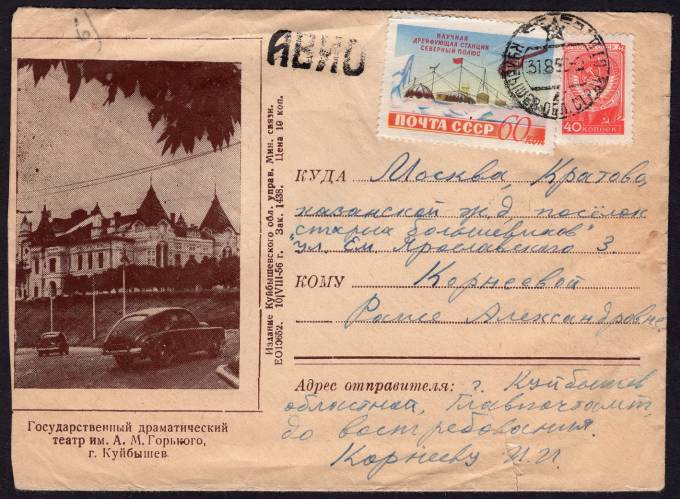 АВИО
НАУЧНАЯ
ДРЕЙФУЮЩАЯ СТАНЦИЯ
СЕВЕРНЫЙ ПОЛЮС
ПОЧТА СССР 60 коп
40 КОПЕЕК
31.8.5
КУЙБЫШЕВ ОБЛ.
КУДА Москва, Кратово,
казанской ж.д. посёлок
"старых большевиков"
ул. Ем. Ярославского 3.
КОМУ Корнеевой
Александровне
Адрес отправителя: г. Куйбышев
областной, Главпочтамт
до востребования.
Корнееву П.И.
Издание Куйбышевского обл. управ. Мин. связи.
ЕО10652. 10/VIII-56 г. Зак. 1438. Цена 19 коп.
Государственный драматический
театр им. А. М. Горького,
г. Куйбышев